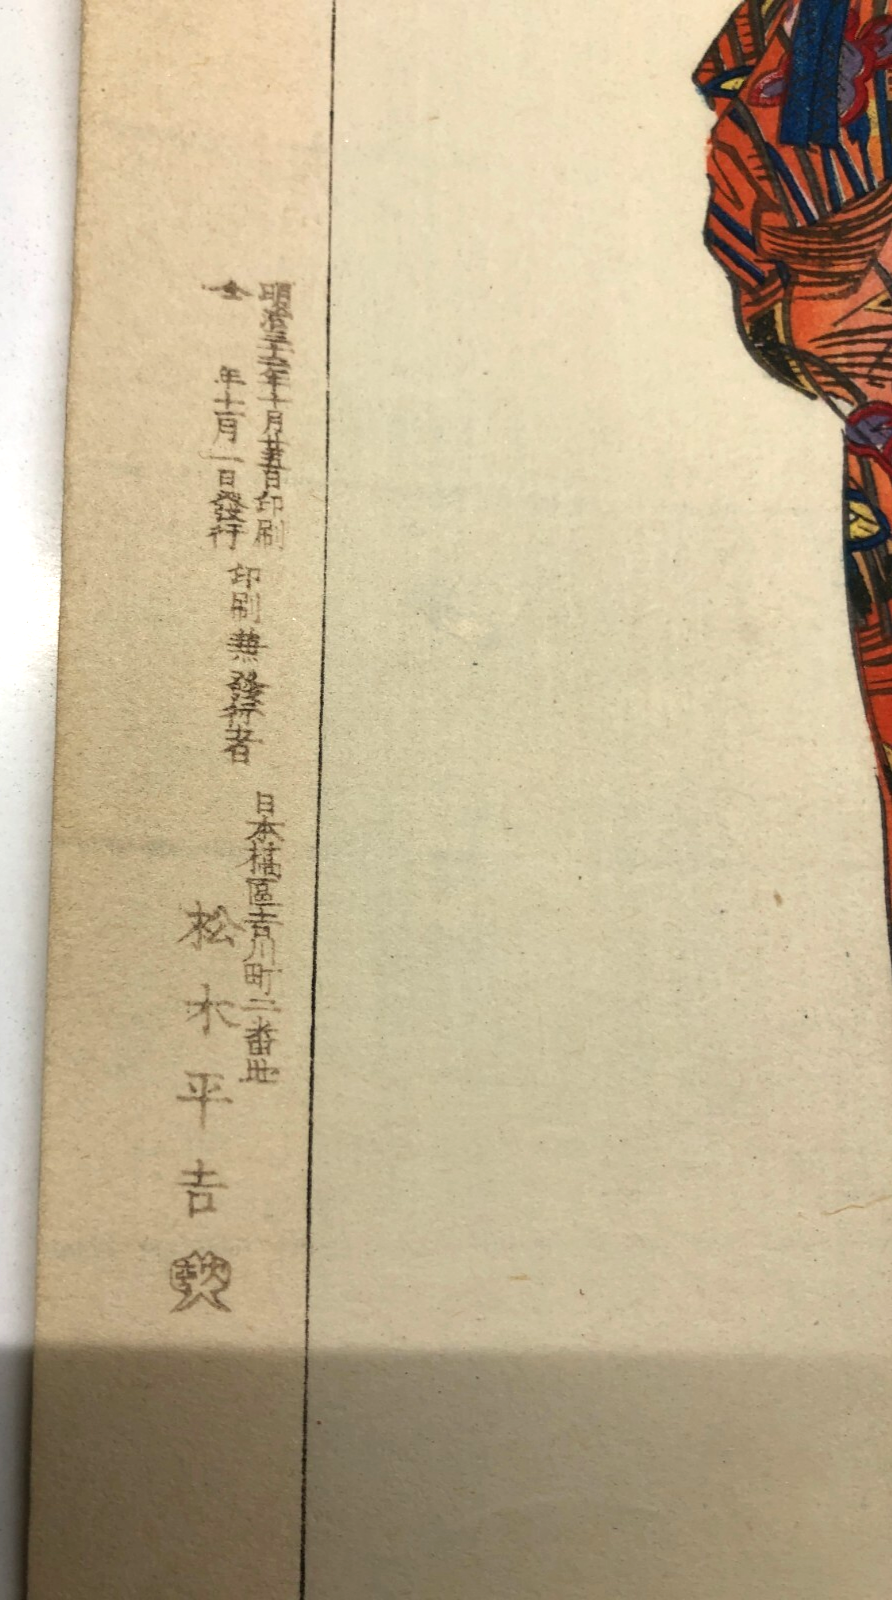 明治三十一年十月廿五日印刷
仝 年十一月一日發行
印刷兼發行者
日本橋區吉川町二番地
松木平吉